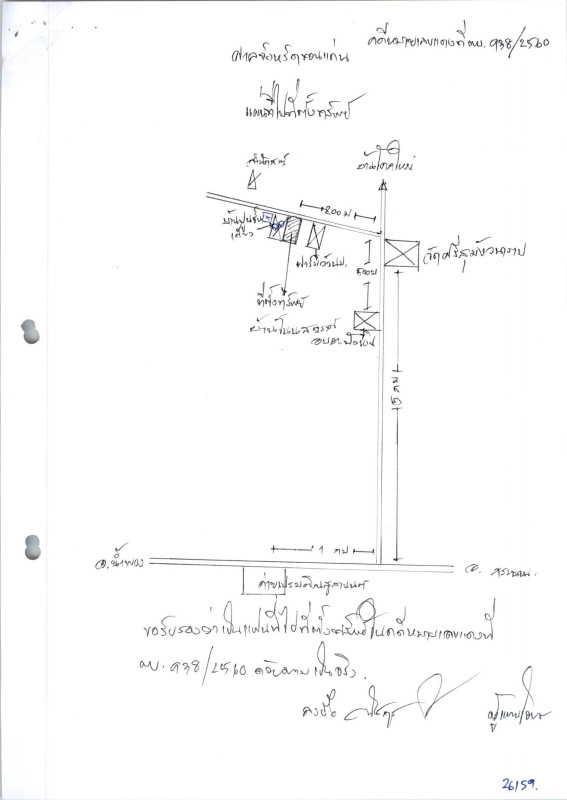 คดีหมายเลขแดงที่ ผบ. ๙๓๘/2560
ศาลจังหวัดขอนแก่น
แผนที่ไปที่ตั้งทรัพย์
บ้านโคกใหญ่
200 ม
บ้านปูนชั้น
เดียว
ฟาร์มโคนม
500 ม
วัดศรีสุมังวนาราม
ที่ตั้งทรัพย์
บ้านโนนสวรรค์
1 กม
อ.น้ำพอง
อ. กระนวน
ค่ายเปรมติณสูลานนท์
ขอรับรองว่าเป็นแผนที่ไปที่ตั้งทรัพย์ในคดีหมายเลขแดงที่
ผบ. ๙๓๘/2560 ตามความเป็นจริง.
ลงชื่อ ผู้แทนโจทก์
26/59.